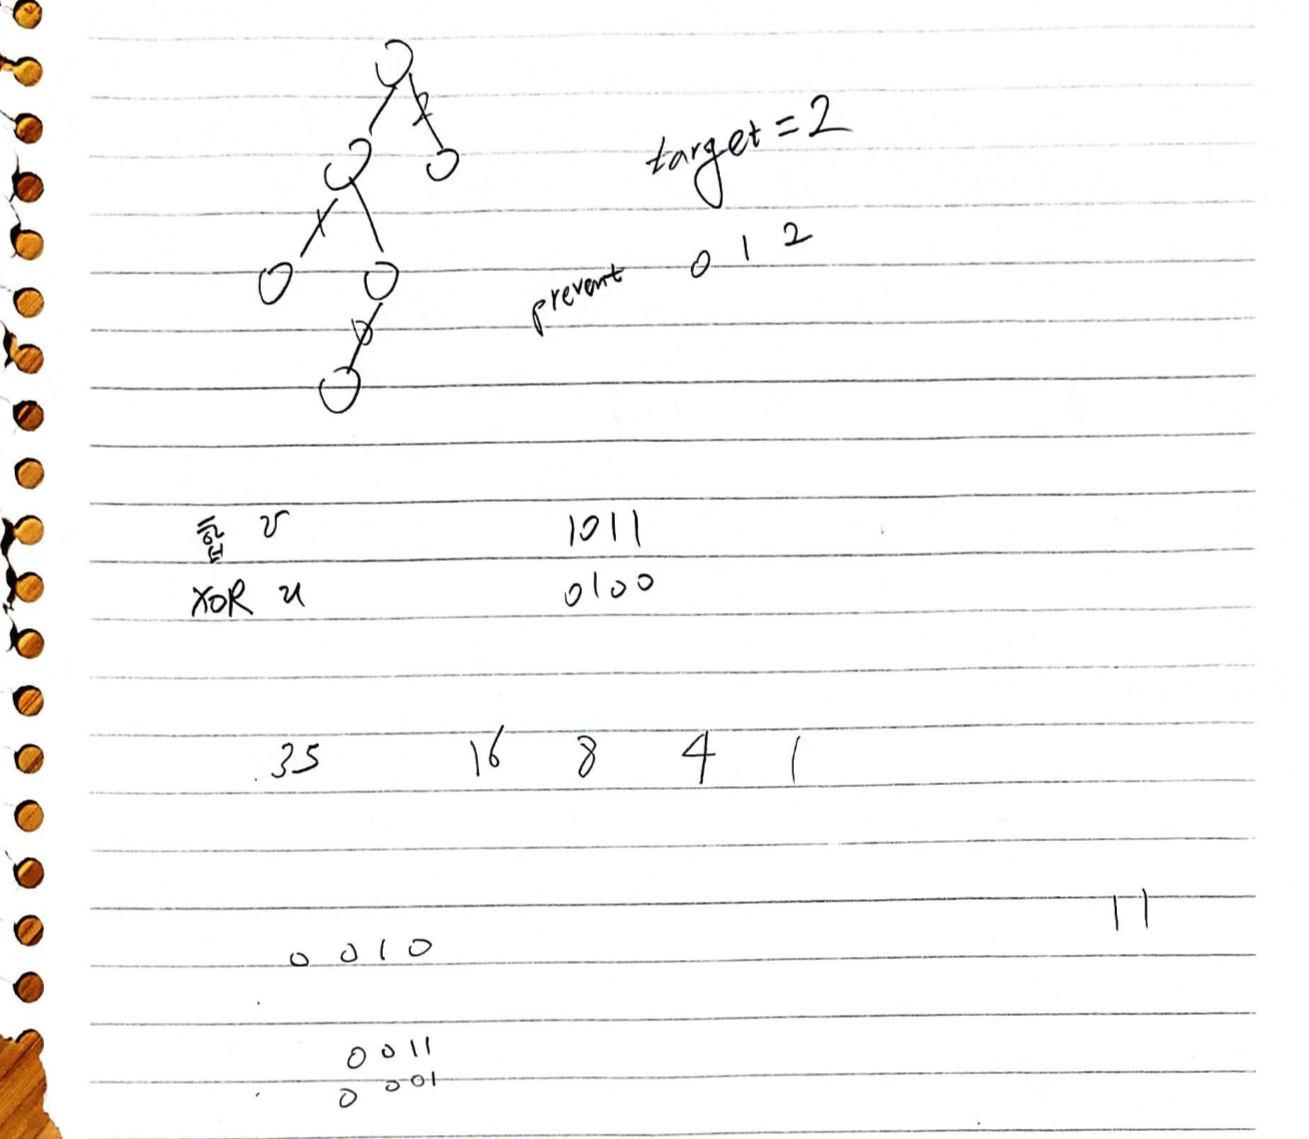 2
target = 2
1
0 1 2
prevent
0
v 1011
XOR u 0100
35 16 8 4 1
11
0 0 1 0
0 0 1 1
0 0 0 1